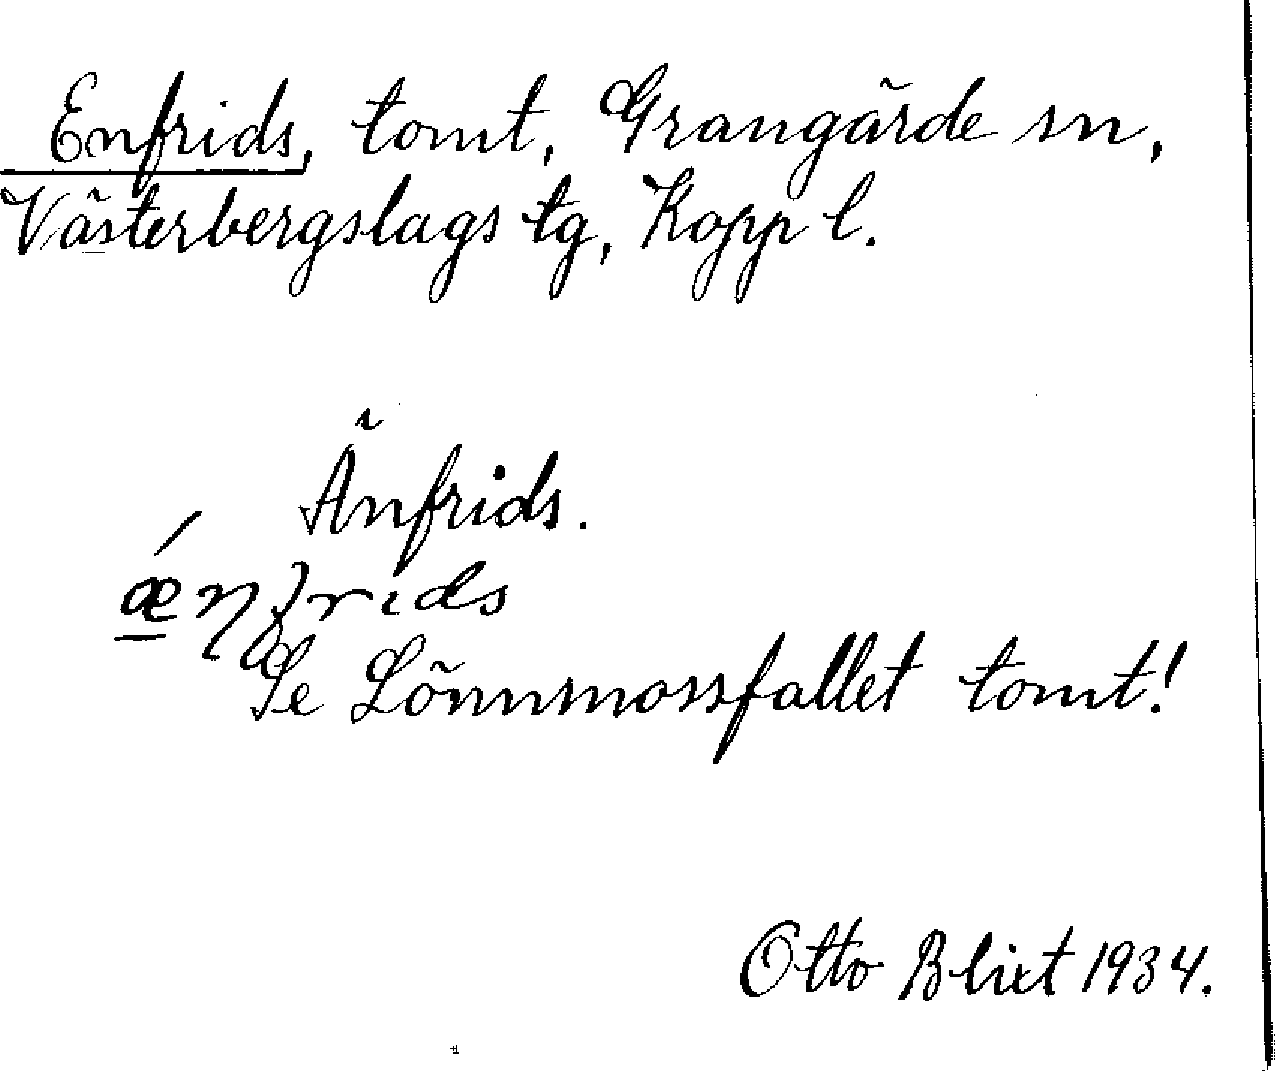 Enfrids, tomt, Grangärde sn,
Västerbergslags tg, Kopp l.
Änfrids.
Se Lönnmossfallet tomt!
Otto Blixt 1934.